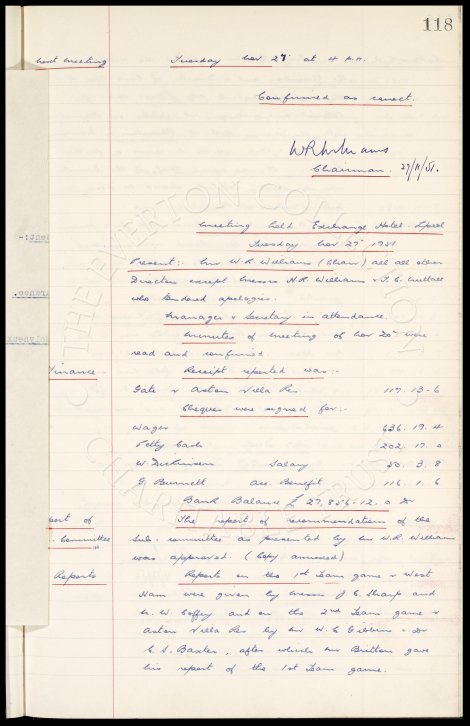 118
Next meeting Tuesday Nov 27th at 4 p.m.
Confirmed as correct.
W R Williams
Chairman. 27/11/51.
THE EVERTON COLLECTION
CHARITABLE TRUST
Meeting held Exchange Hotel. Lpool
Tuesday Nov 27th 1951
Present:- Mr W.R. Williams (Chair) all other
Directors except Messrs H.R. Williams & T.C. Nuttall
who tendered apologies.
Manager & Secretary in attendance.
Minutes of meeting of Nov 20th were
read and confirmed
Finance. Receipt reported was:-
Gate v Aston Villa Res 117. 13 - 6
Cheques were signed for:-
Wages 636. 19. 4
Petty Cash 202. 17. 0
W. Dickinson Salary 50. 3. 8
G. Burnett Acc. Benefit 116. 1. 6
Bank Balance £ 27,856-12.0 Dr
port of The report of recommendations of the
Committee Sub. committee as presented by Mr W.R. Williams
was approved. (Copy annexed)
Reports Reports on the 1st Team game v West
Ham were given by Messrs J.C. Sharp and
N. W. Coffey and on the 2nd Team game v
Aston Villa Res by Mr W.C. Gibbins & Dr
C.S. Baxter, after which Mr Britton gave
his report of the 1st Team game.